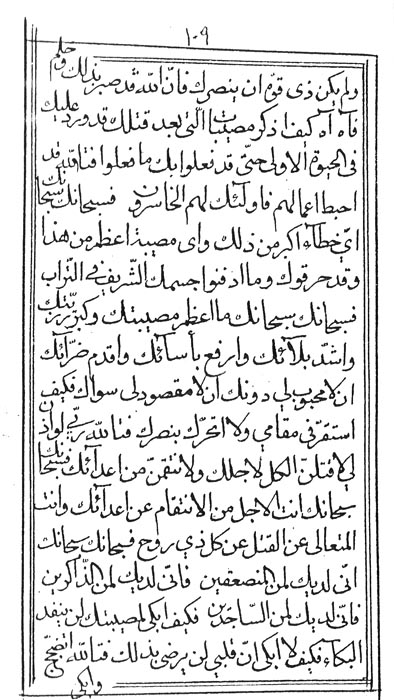 ١٠٩
ولم يكن ذي قوة ان ينصرك فان الله قد صبر بذلك وحلم
فآه آه كيف اذكر مصيبات التي بعد قتلك قد ورد عليك
في الحيوة الاولى حتى قد فعلوا بك ما فعلوا فتالله قد
احبط اعمالهم فاولئك لهم الخاسرون فسبحانك سبحانك
اي خطاء اكبر من ذلك واي مصيبة اعظم من هذا
وقد حرقوك وما ادفنوا جسمك الشريف في التراب
فسبحانك سبحانك ما اعظم مصيبتك وكبر رزيتك
واشد بلائك وارفع بأسائك واقدم ضرائك
ان لا محبوب لي دونك ان لا مقصود لي سواك فكيف
استقر في مقامي ولا اتحرك بنصرك فتالله ربي لو اذن
لي لاقتلن الكل لاجلك ولانتقمن من اعدائك فسبحانك
سبحانك انت الاجل من الانتقام عن اعدائك وانت
المتعالي عن القتل عن كل ذي روح فسبحانك سبحانك
اني لديك لمن المنصعقين فاني لديك لمن الذاكرين
فاني لديك لمن الساجدين فكيف ابكي لمصيبتك لن ينفد
البكاء فكيف لا ابكي ان قلبي لن يرضى بذلك فتالله اضج
وابكي